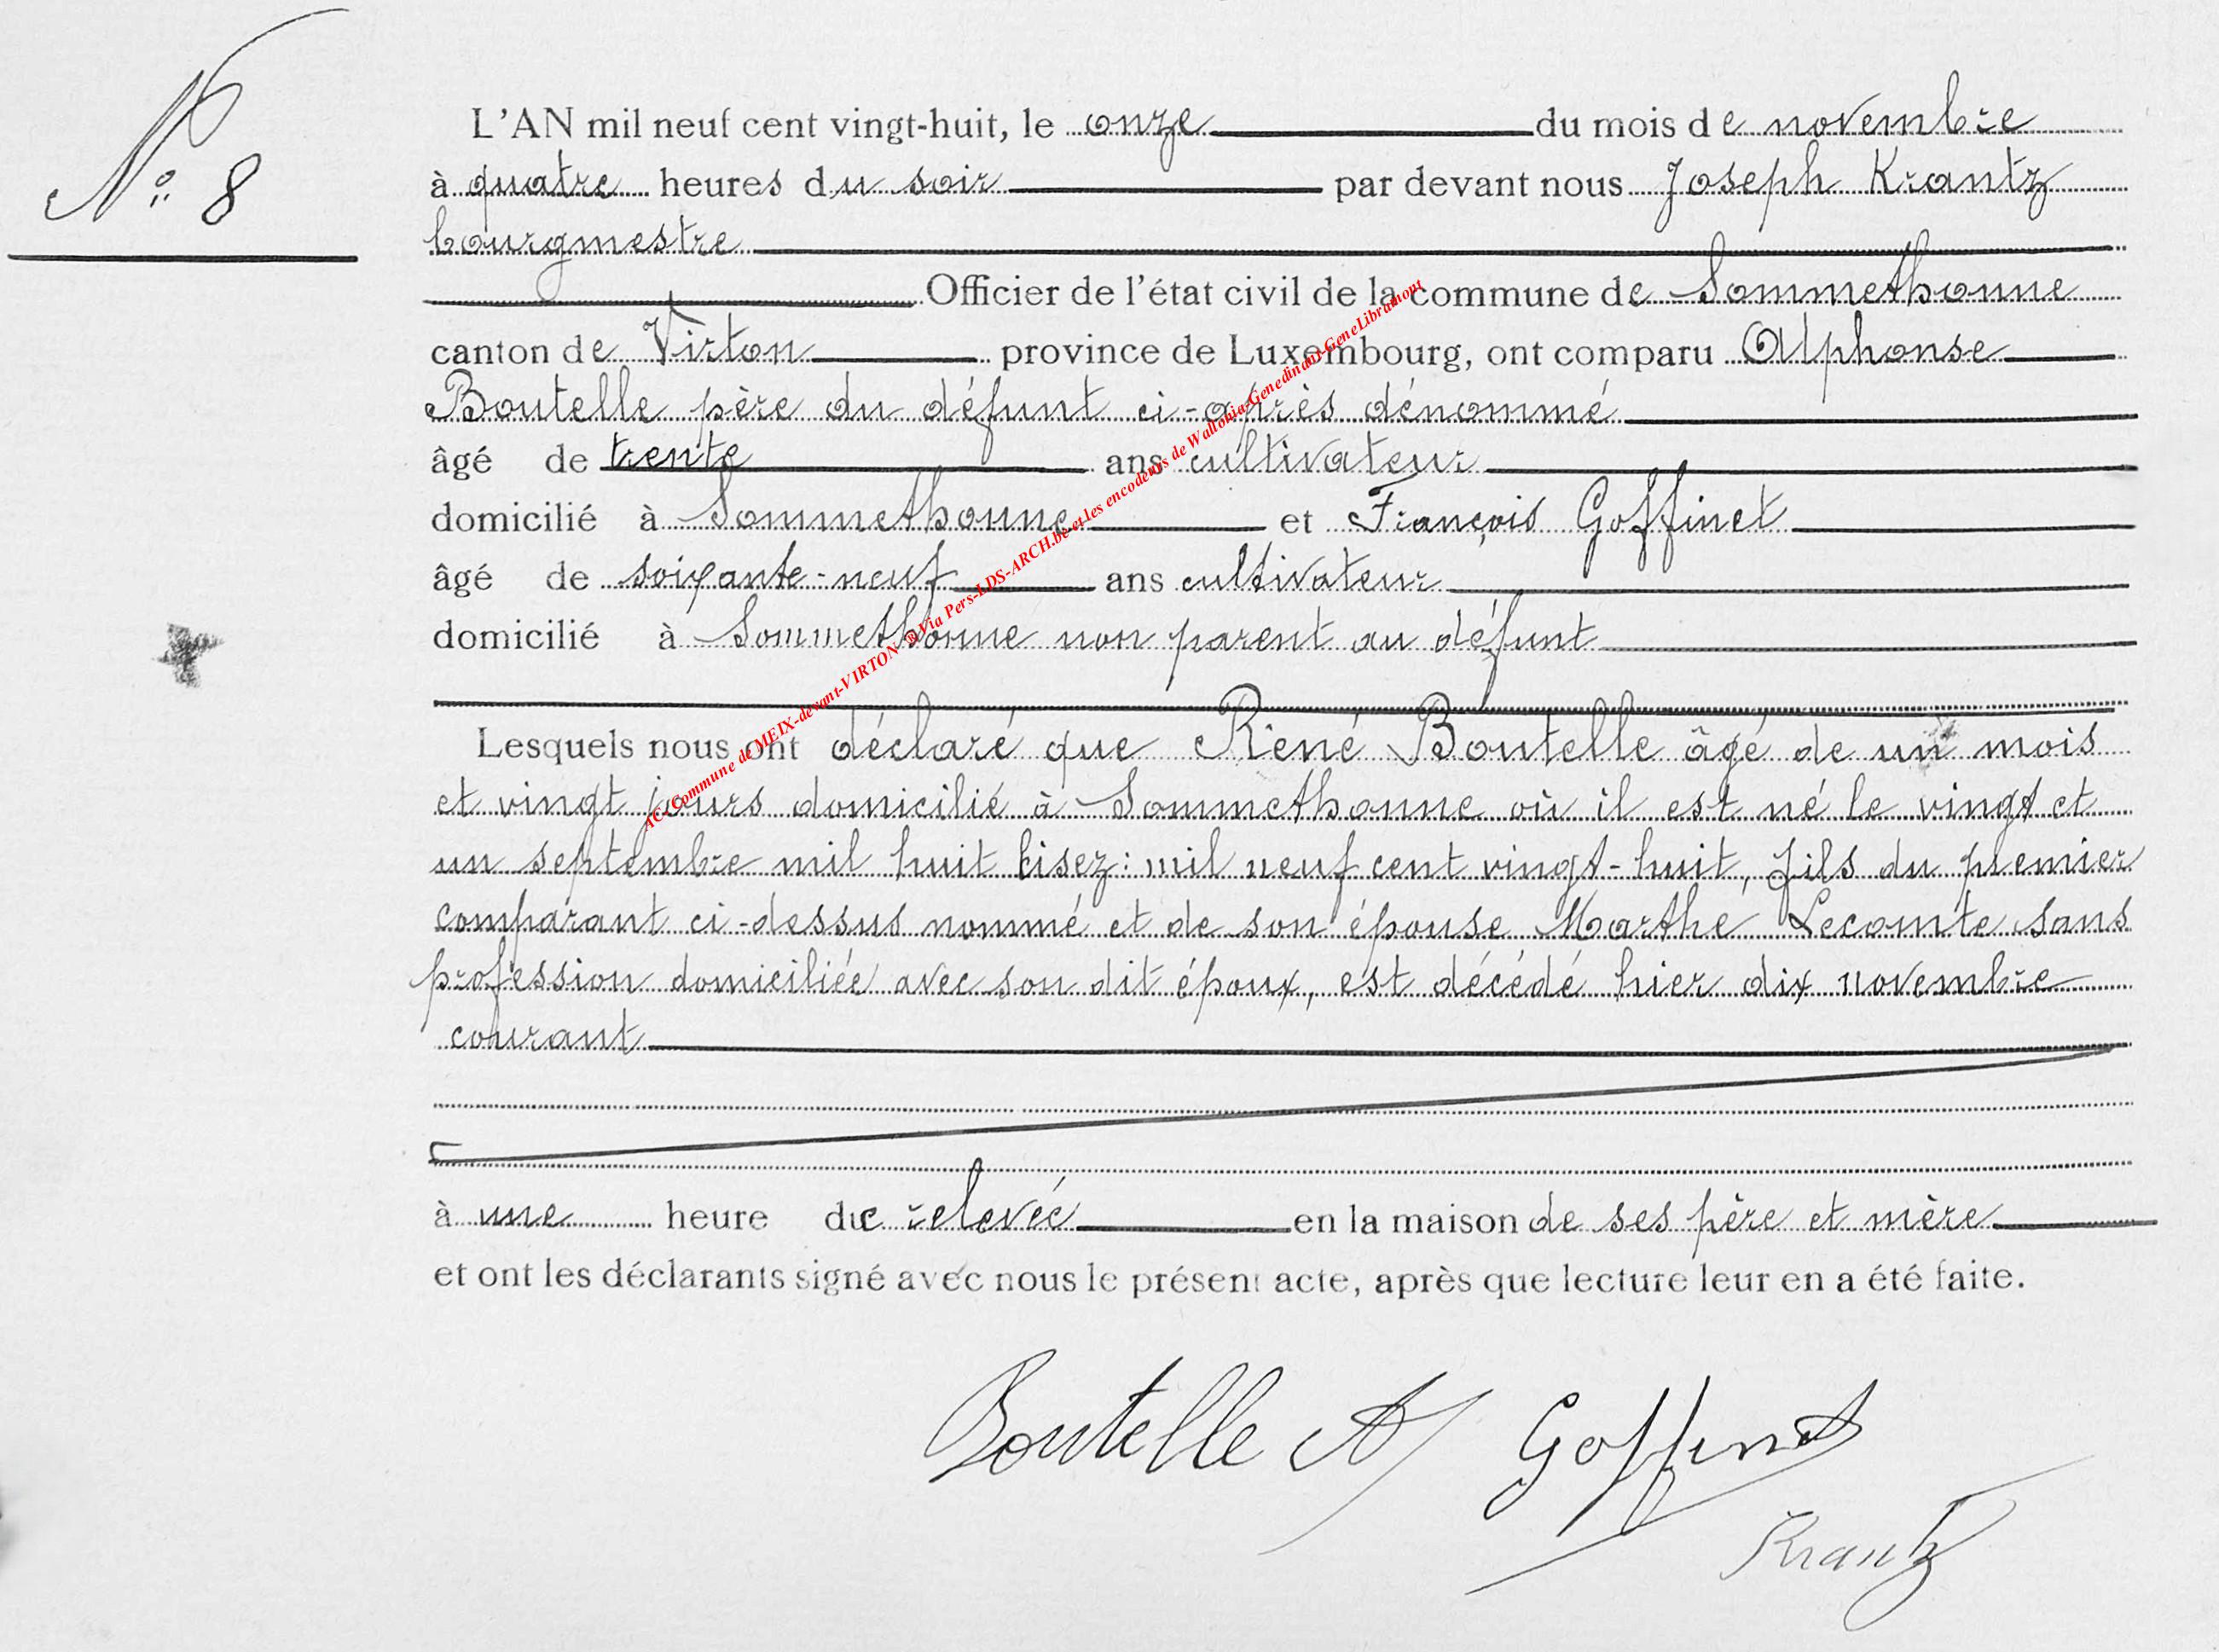 N° 8
L'AN mil neuf cent vingt-huit, le onze du mois de novembre
à quatre heures du soir par devant nous Joseph Krantz
bourgmestre
Officier de l'état civil de la commune de Sommethonne
canton de Virton province de Luxembourg, ont comparu Alphonse
Boutelle père du défunt ci-après dénommé
âgé de trente ans cultivateur
domicilié à Sommethonne et François Goffinet
âgé de soixante-neuf ans cultivateur
domicilié à Sommethonne non parent au défunt
Lesquels nous ont déclaré que René Boutelle âgé de un mois
et vingt jours domicilié à Sommethonne où il est né le vingt et
un septembre mil huit lisez: mil neuf cent vingt-huit, fils du premier
comparant ci-dessus nommé et de son épouse Marthe Lecomte sans
profession domiciliée avec son dit époux, est décédé hier dix novembre
courant
à une heure de relevée en la maison de ses père et mère
et ont les déclarants signé avec nous le présent acte, après que lecture leur en a été faite.
Boutelle A Goffinet
Krantz
AC-Commune de MEIX-devant-VIRTON ® Via Pers-LDS-ARCH.be et les encodeurs de Wallonia-Genedinant-GeneLibramont